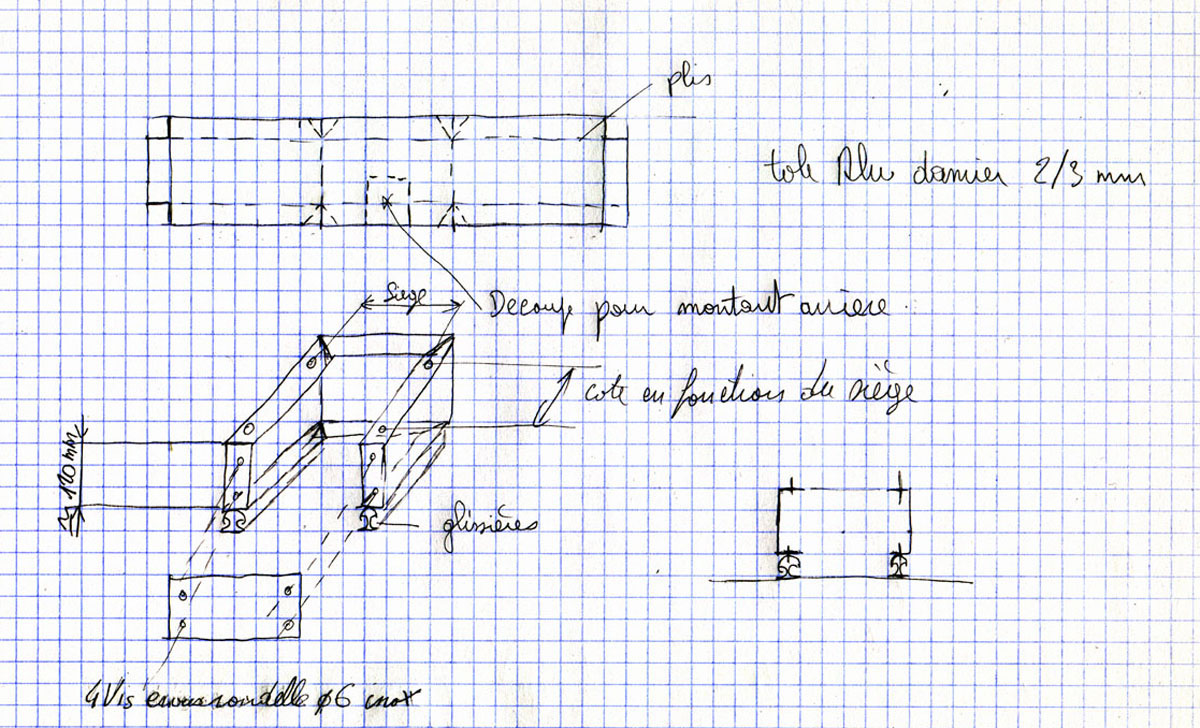 plis
tole Alu damier 2/3 mm
Siege
Decoup pour montant arriere
cote en fonction du siège
120 mm
glissières
4 Vis rondelle ø6 inox